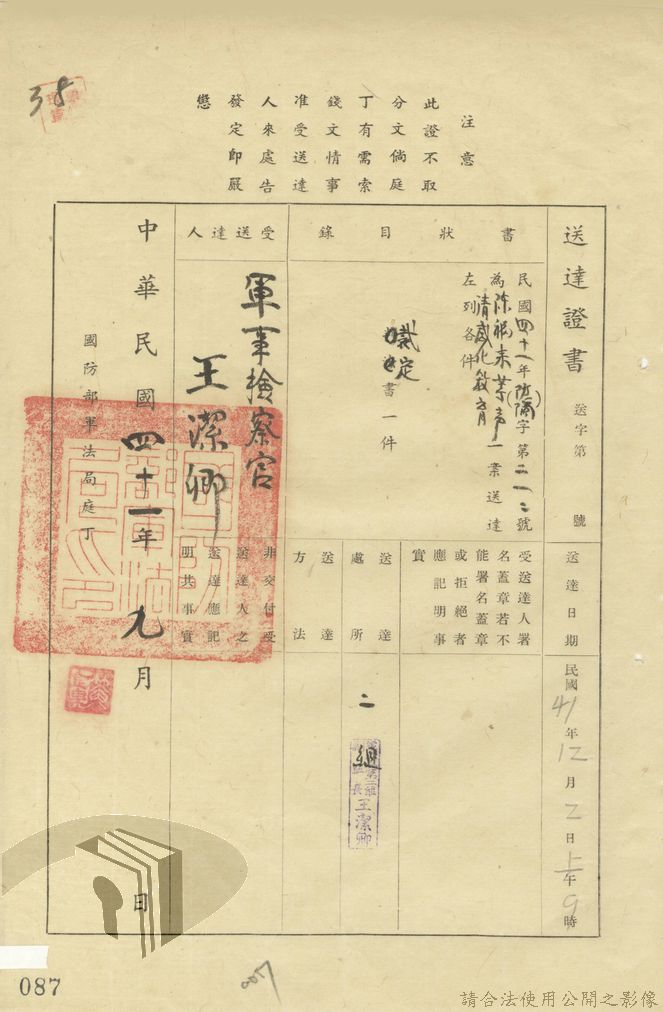 38
注意
此證不取
分文倘庭
丁有需索
錢文情事
准受送達
人來處告
發定即嚴
懲
送達證書
送字第 號
送達日期
民國41年12月2日上午9時
書狀目錄
民國四十一年防隔字第二一二號
為陳福來等一案送達
左列各件
裁定書一件
受送達人署
名蓋章若不
能署名蓋章
或拒絕者
應記明事
實
送達處所
二組
王潔卿
送達方法
受送達人
軍事檢察官
王潔卿
非交付受
送達人之
送達應記
明其事實
中華民國四十一年九月 日
國防部軍法局庭丁
087
007
請合法使用公開之影像